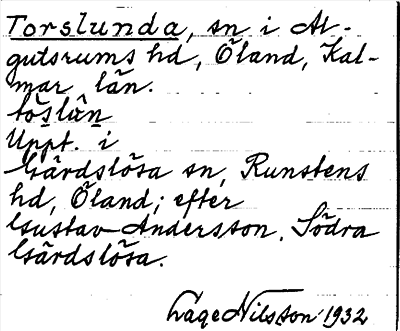 Torslunda, sn i Al-
gutsrums hd, Öland, Kal-
mar län.
tòslú̀n
Uppt. i
Gärdslösa sn, Runstens
hd, Öland; efter
Gustav Andersson, Södra
Gärdslösa.
Lage Nilsson 1932